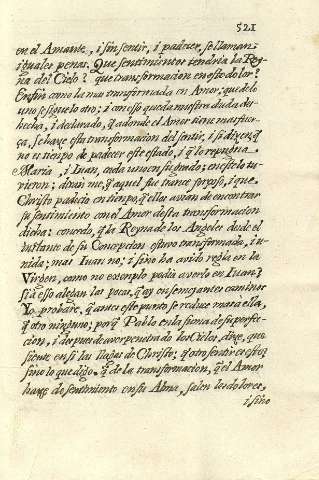 521
en el Amante, i sin sentir, i padecer, se llaman
iguales penas. Que sentimientos tendria la Rey-
na del Cielo? que transformacion en este dolor?
Enfin como la mas transformada en Amor; que de lo
uno se sigue lo otro; i con esso queda nuestra duda des-
hecha, i declarado, q̃ adonde el Amor tiene mas fuer-
ça, se haze esta transformacion del sentir, i si dizen, q̃
no es tiempo de padecer este estado, i q̃ lo repugna
Maria, i Iuan, cada uno en su grado; en esse lo tu-
vieron; diran me, q̃ aquel fue trance forçoso, i que
Christo padecia en tiempo, q̃ ellos avian de encontrar
su sentimiento con el Amor desta transformacion
dicha: concedo, q̃ la Reyna de los Angeles desde el
instante de su Concepcion estuvo transformada, i u-
nida; mas Iuan no; i sino ha avido regla en la
Virgen, como no exemplo podia averlo en Iuan?
si a esso alegan las pocas, q̃ ay en semejantes caminos
Yo probàre, q̃ antes este punto se reduce mas a ella,
q̃ otro ninguno; porq̃ Pablo en la suma de su perfec-
cion, i despues de aver penetrado los Cielos, dize, que
siente en si las llagas de Christo; q̃ otro sentir es este,
sino lo que digo. q̃ de la transformacion, q̃ el Amor
haze de sentimiento en su Alma, salen los dolores,
i sino